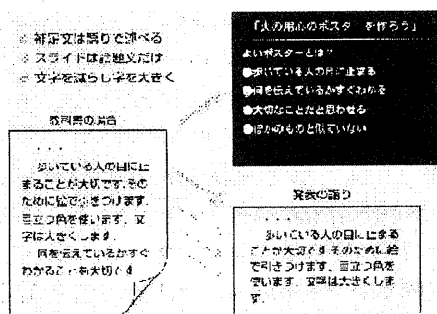 補足文は語りで述べる
スライドは話題文だけ
文字を減らし字を大きく
教科書の場合
・・・
歩いている人の目に止
まることが大切です。その
ために絵で引きつけます。
目立つ色を使います。文
字は大きくします。
何を伝えているかすぐ
わかることも大切です
「火の用心のポスターを作ろう」
よいポスターとは？
●歩いている人の目に止まる
●何を伝えているかすぐわかる
●大切なことだと思わせる
●ほかのものと似ていない
発表の語り
・・・・
歩いている人の目に止まる
ことが大切です。そのために絵
で引きつけます。目立つ色を
使います。文字は大きくしま
す。